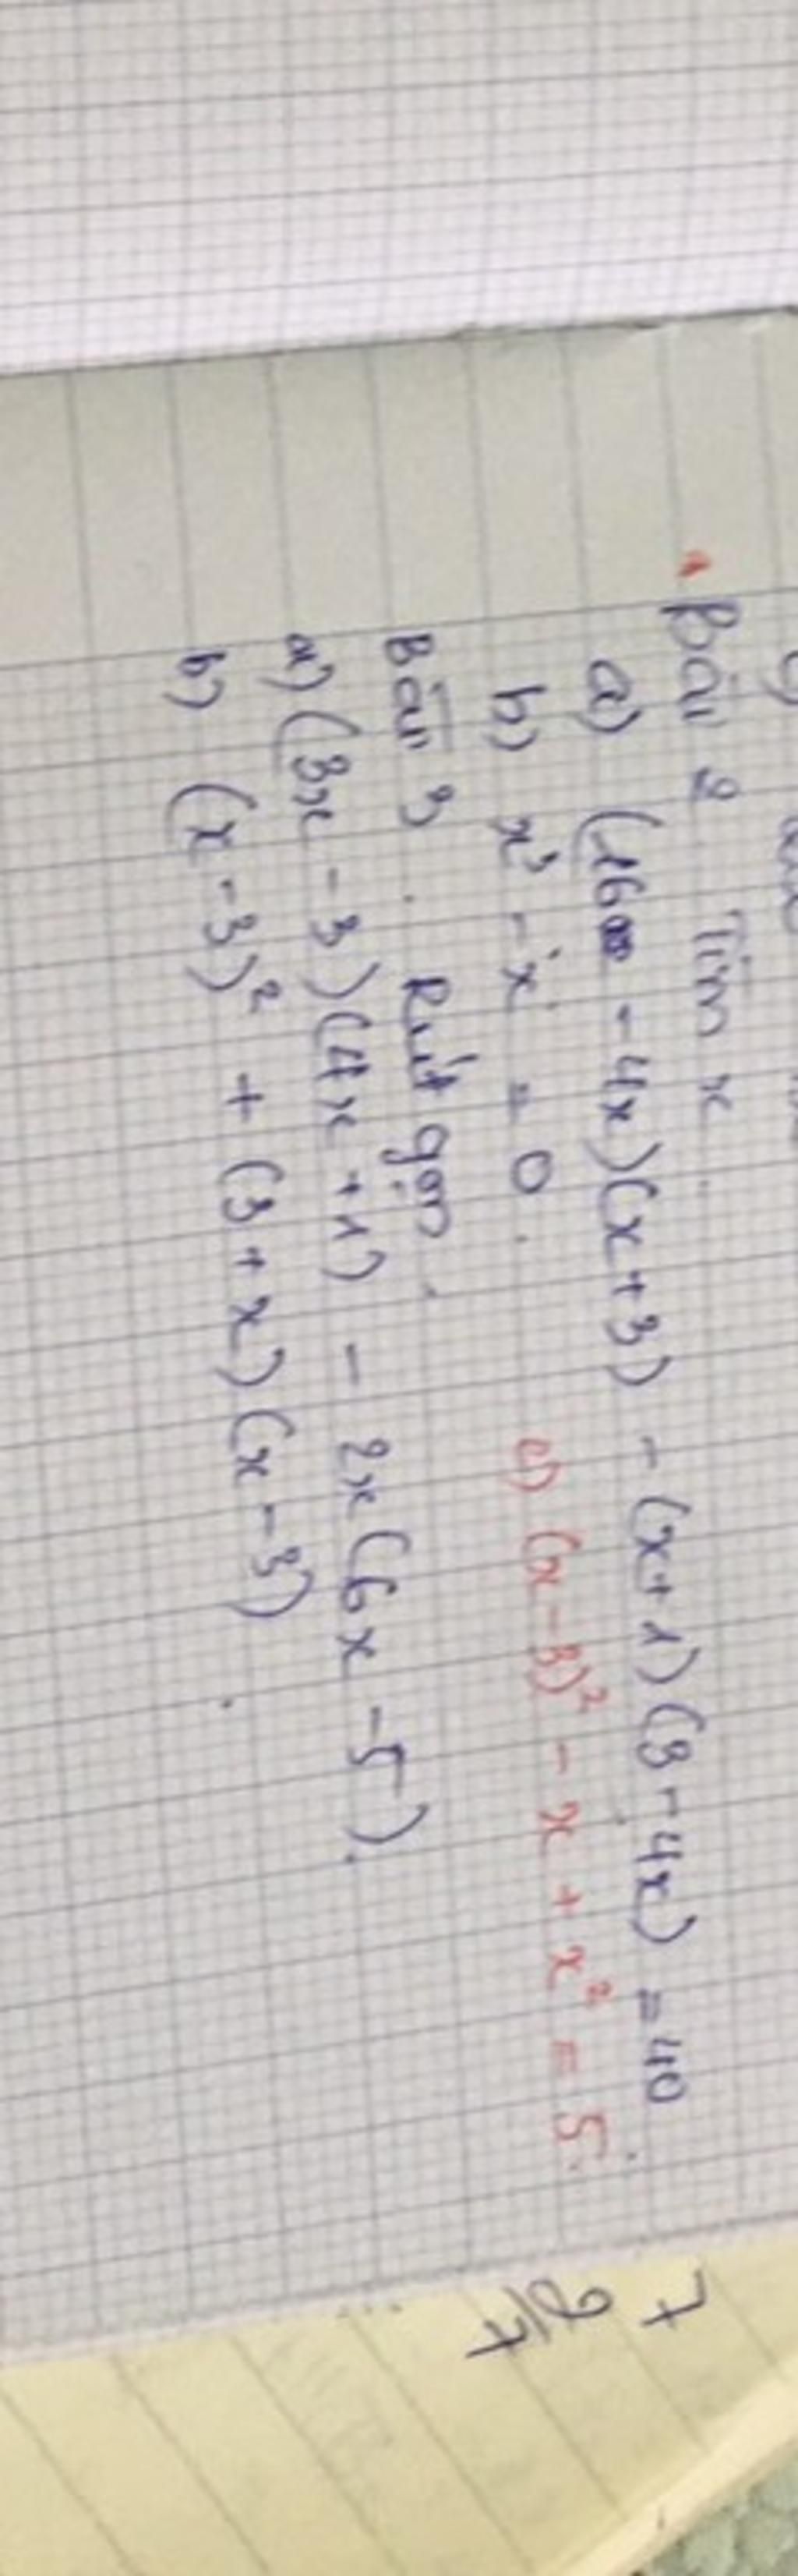 Bài 2 Tìm x
a) (16 - 4x)(x+3) - (x+1)(3-4x) = 40
b) x³ - x = 0. c) (x-3)² - x + x² = 5.
Bài 3. Rút gọn.
a) (3x - 3)(4x + 1) - 2x(6x - 5).
b) (x - 3)² + (3 + x)(x - 3)
7
9
7